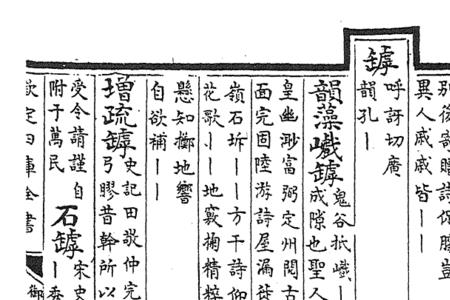 別後寄贈詩
異人戚戚皆丨丨
罅
呼訝切廣
韻孔丨
韻藻巇罅
鬼谷抵巇丨
成隙也聖人
皇幽渺富弼定州閱古
面完固陸游詩屋漏徙
嶺石坼丨丨方干詩仰
花歌丨丨地竅掬精粹
懸知擲地響
自欲補丨丨
增疏罅
史記田敬仲完
弓膠昔幹所以
受令請謹自
附于萬民
石罅
宋史
丨
欽定四庫全書
御